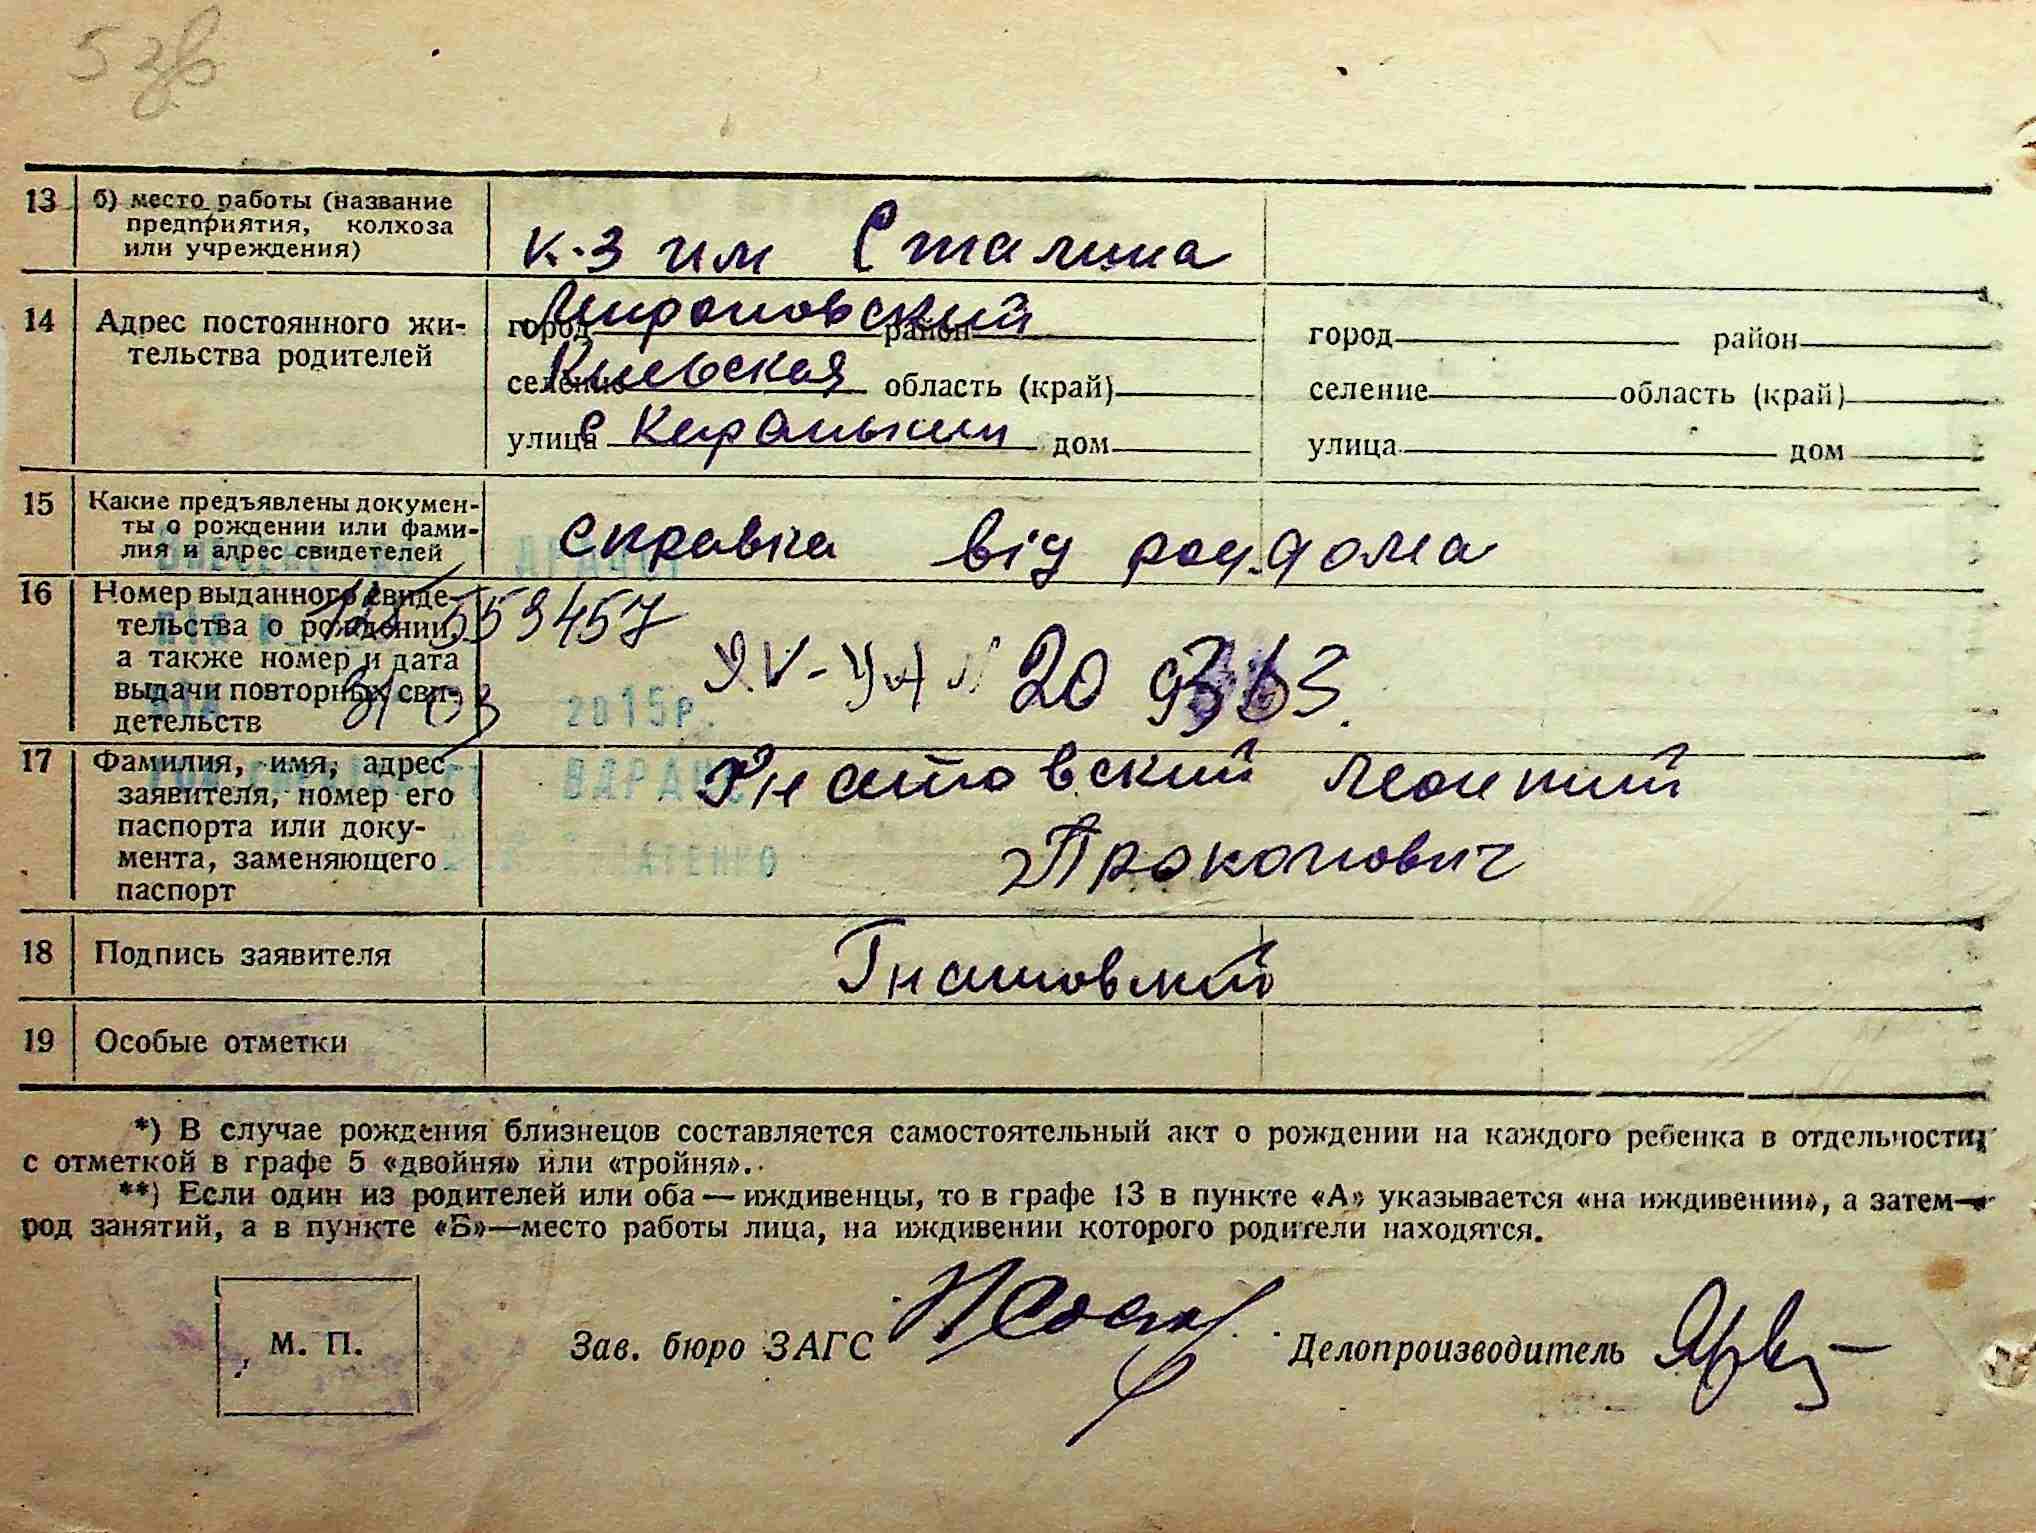 13 б) место работы (название
предприятия, колхоза
или учреждения)
к-з им Сталина
14 Адрес постоянного жи-
тельства родителей
Мироновский
город район
Киевская
селение область (край)
улица с Кираньким дом
город район
селение область (край)
улица дом
15 Какие предъявлены докумен-
ты о рождении или фами-
лия и адрес свидетелей
справка від род.дома
16 Номер выданного свиде-
тельства о рождении,
а также номер и дата
выдачи повторных сви-
детельств
559457
31 03 2015р.
ЯV-УА N 20
17 Фамилия, имя, адрес
заявителя, номер его
паспорта или доку-
мента, заменяющего
паспорт
Гнатовский Леонтий
Прокопович
18 Подпись заявителя
Гнатовский
19 Особые отметки
*) В случае рождения близнецов составляется самостоятельный акт о рождении на каждого ребенка в отдельности,
с отметкой в графе 5 «двойня» или «тройня».
**) Если один из родителей или оба — иждивенцы, то в графе 13 в пункте «А» указывается «на иждивении», а затем—
род занятий, а в пункте «Б»—место работы лица, на иждивении которого родители находятся.
М. П.
Зав. бюро ЗАГС
Делопроизводитель